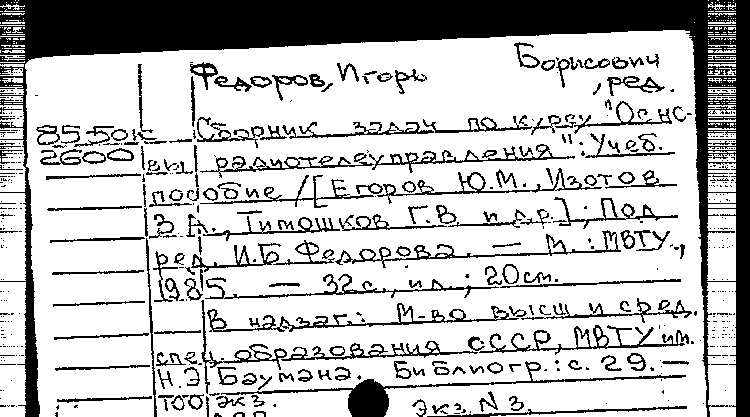 Федоров, Игорь Борисович
, ред.
85-50к Сборник задач по курсу "Осно-
2600 вы радиотелеуправления": Учеб.
пособие / [Егоров Ю.М., Изотов
В.А., Тимошков Г.В. и др.]; Под
ред. И.Б. Федорова. — М.: МВТУ,
1985. — 32 с., ил.; 20 см.
В надзаг.: М-во высш. и сред.
спец. образования СССР, МВТУ им.
Н.Э. Баумана. Библиогр.: с. 29. —
100 экз.
Экз. N 3.